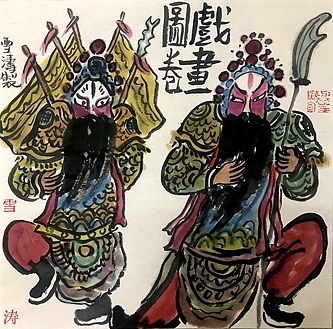 戲畫
圖卷
雪濤製
雪
涛